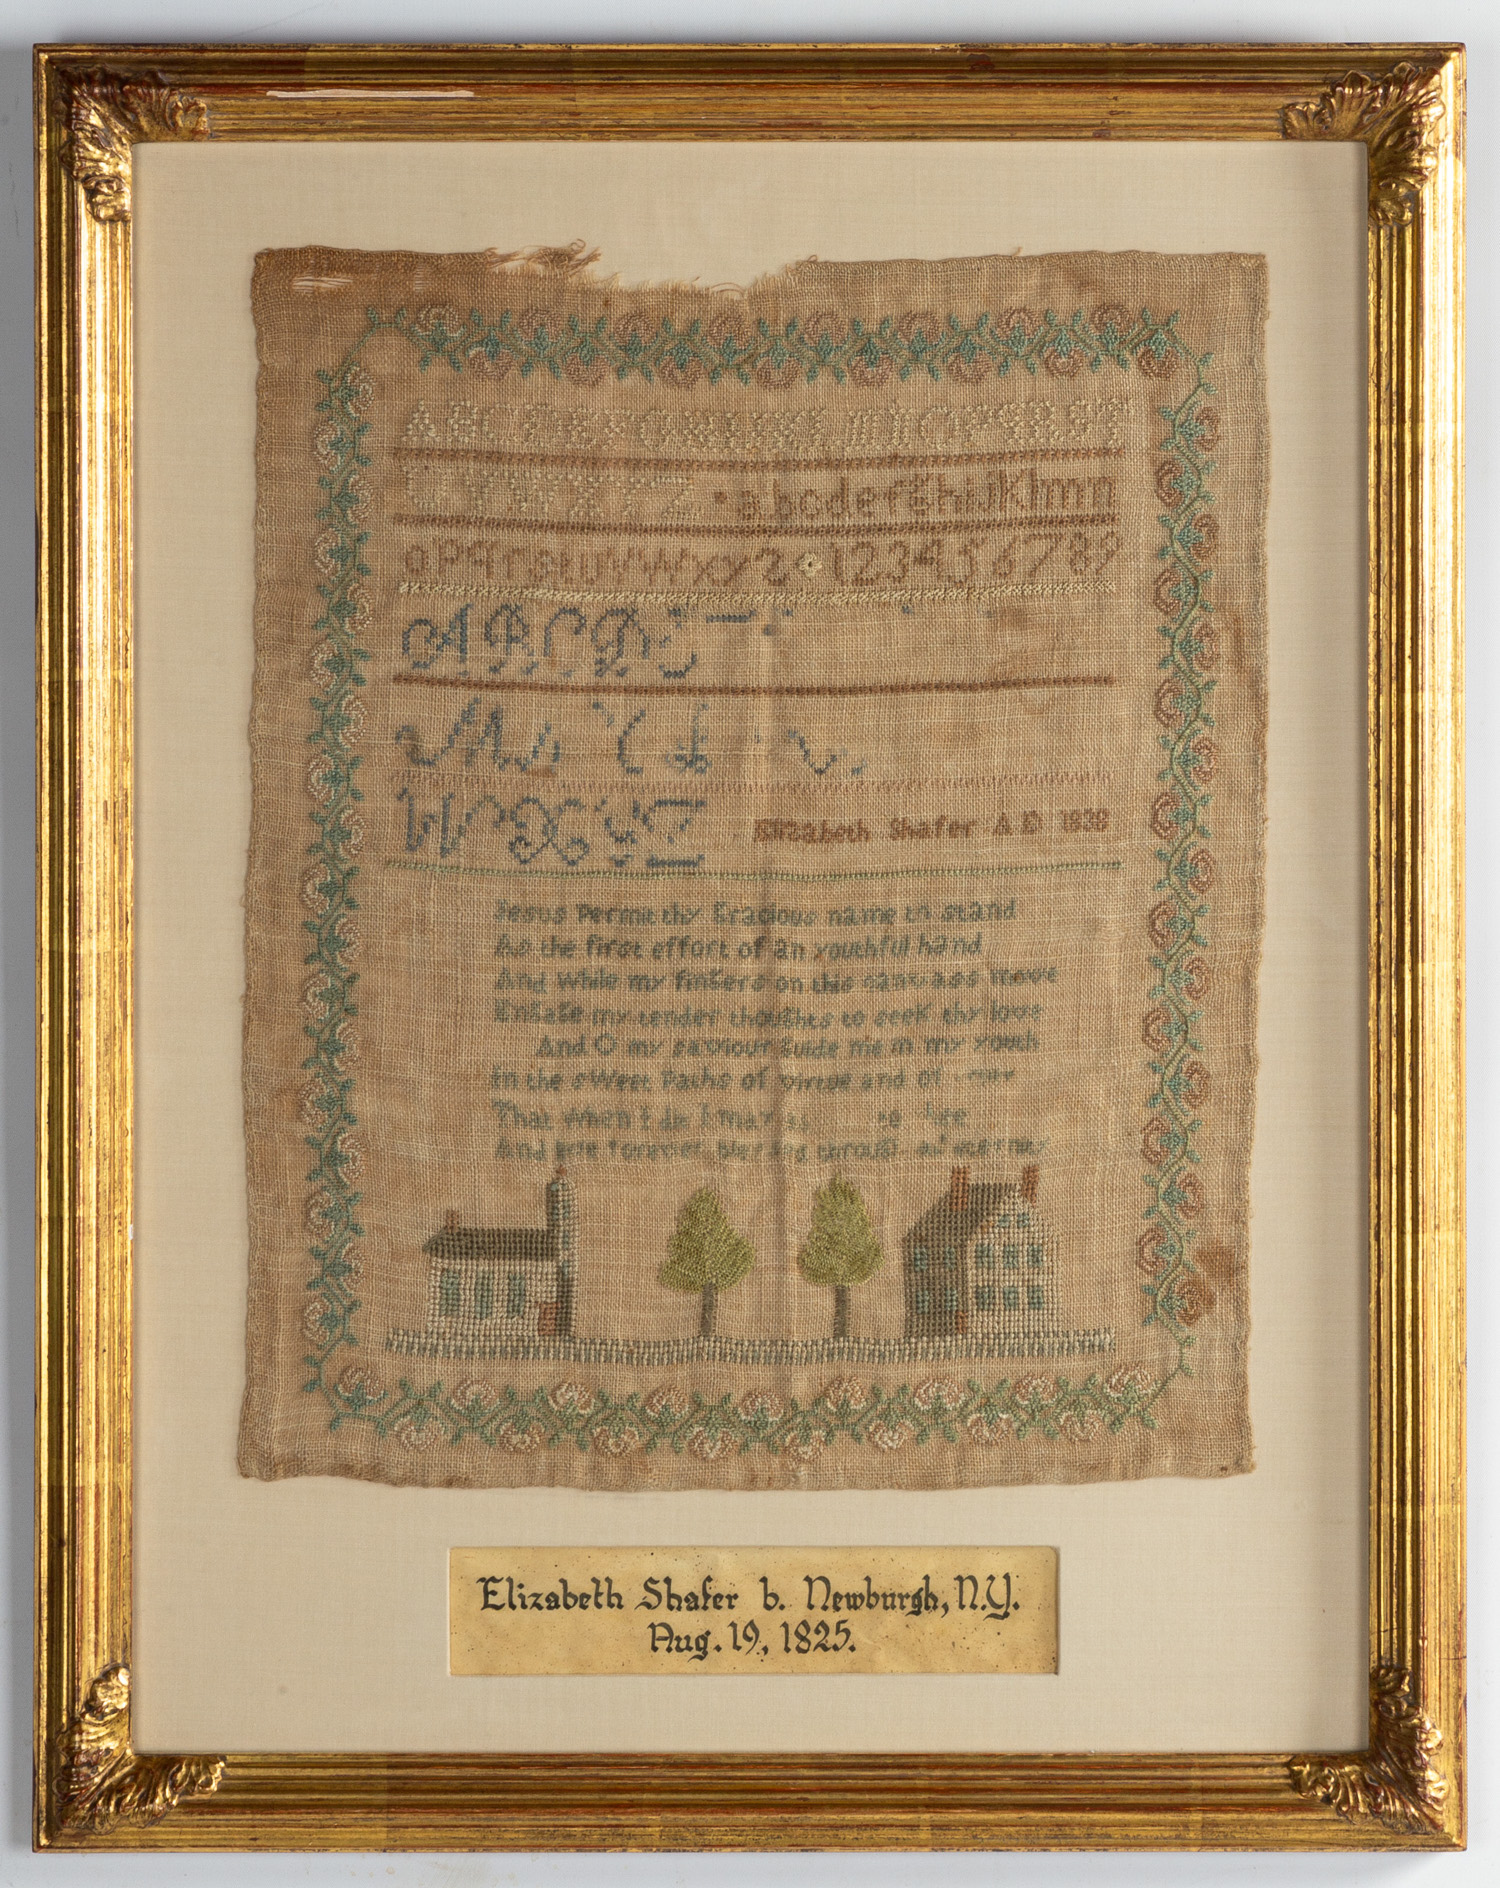 ABCDEFGHIKLMNOPQRST
UVWXYZ abcdefghijklmn
opqrstuvwxyz 123456789
ABCD
M
WXYZ Elizabeth Shafer AD 1839
Jesus permit thy Gracious name to stand
As the first effort of an youthful hand
And while my fingers on this canvass move
Engage my tender thoughts to seek thy love
And O my saviour guide me in my youth
In the sweet Paths of virtue and of
That when I die I may to
And are forever blessing through
Elizabeth Shafer b. Newburgh, N.Y.
Aug. 19, 1825.